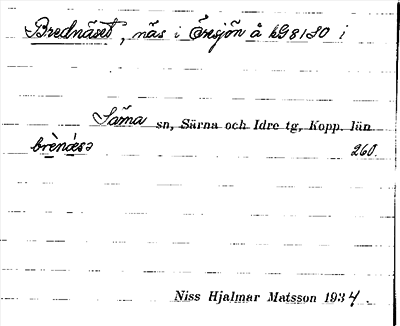 Brednäset, näs i Öresjön å kG8180 i
Särna sn, Särna och Idre tg, Kopp. län
brènǽsə 260.
Niss Hjalmar Matsson 1934.